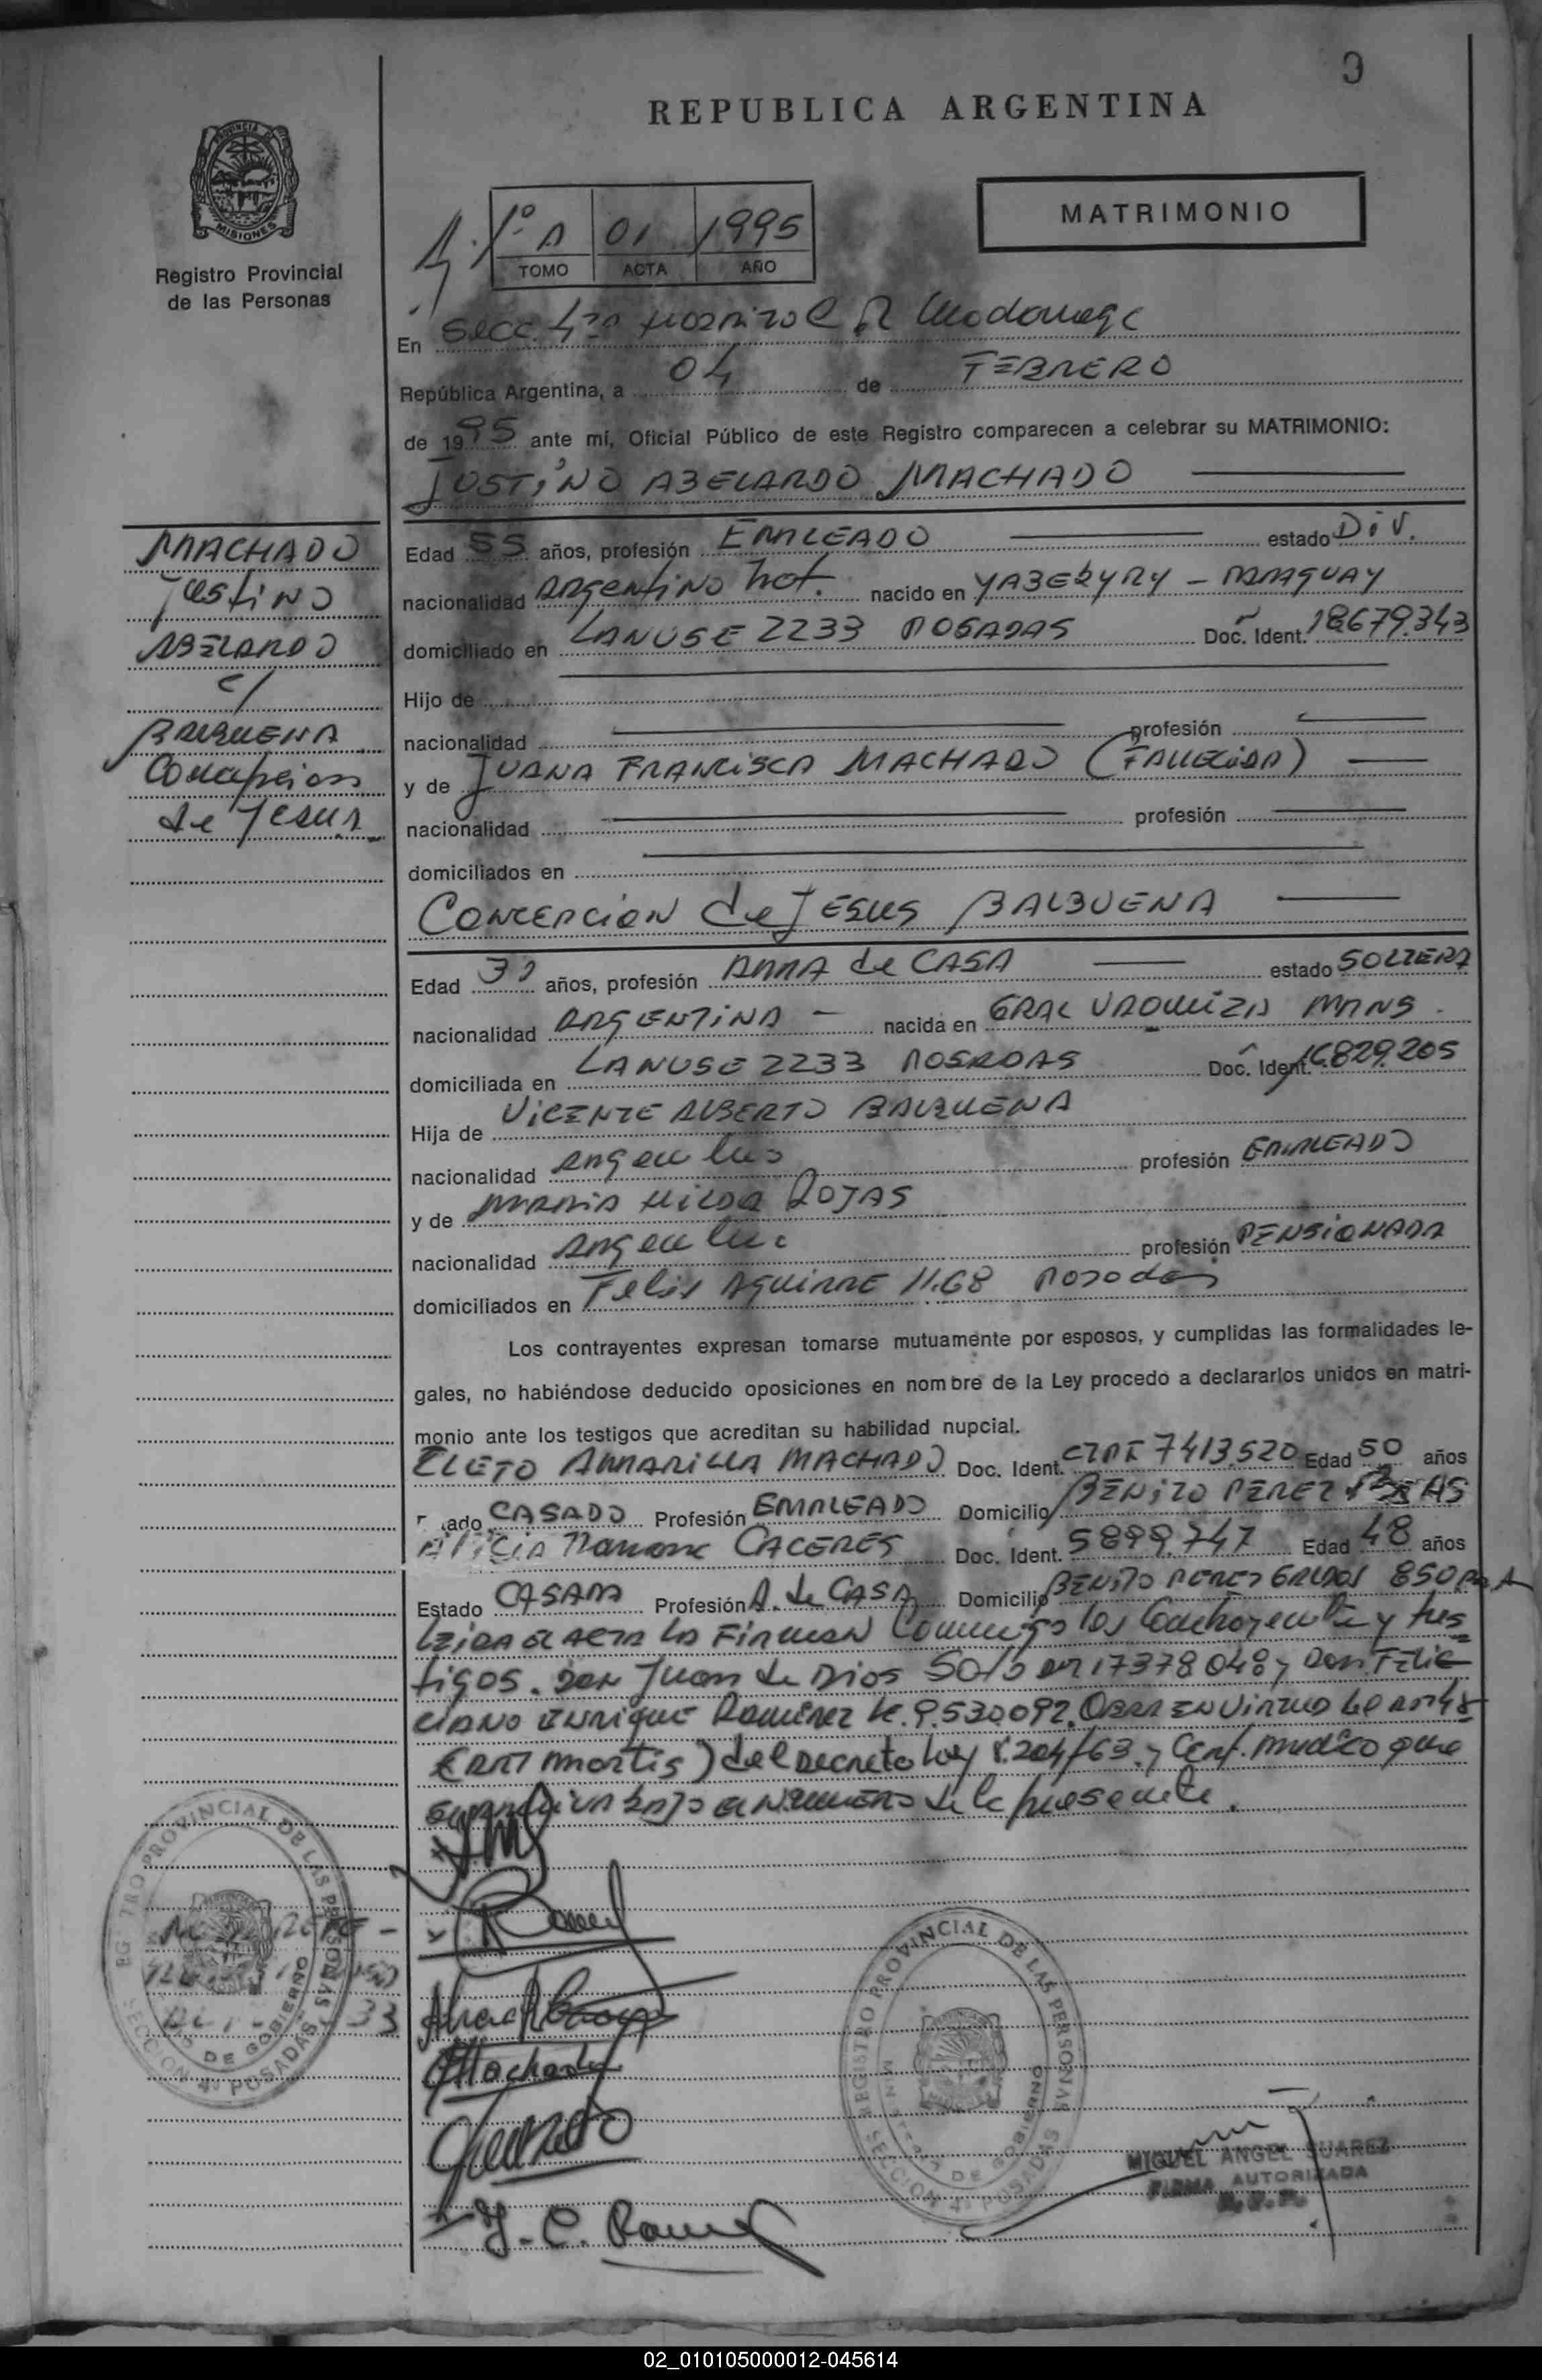 REPUBLICA ARGENTINA
PROVINCIA DE
MISIONES
Registro Provincial
de las Personas
1º A 01 1995
TOMO ACTA AÑO
MATRIMONIO
En Secc. 4ta R. Madariaga
República Argentina, a 04 de FEBRERO
de 1995 ante mí, Oficial Público de este Registro comparecen a celebrar su MATRIMONIO:
JUSTINO ABELARDO MACHADO
MACHADO
Justino
ABELARDO
c/
BALBUENA
Concepcion
de Jesus
Edad 55 años, profesión EMPLEADO estado DIV.
nacionalidad Argentino nat. nacido en YABEBYRY - PARAGUAY
domiciliado en LANUSE 2233 POSADAS Doc. Ident. 18679.343
Hijo de
nacionalidad profesión
y de JUANA FRANCISCA MACHADO (FALLECIDA)
nacionalidad profesión
domiciliados en
CONCEPCION de JESUS BALBUENA
Edad años, profesión AMA de CASA estado SOLTERA
nacionalidad ARGENTINA - nacida en GRAL URQUIZA MNES
domiciliada en LANUSE 2233 POSADAS Doc. Ident. 16829.205
Hija de VICENTE ALBERTO BALBUENA
nacionalidad argentino profesión EMPLEADO
y de MARIA HILDA ROJAS
nacionalidad argentina profesión PENSIONADA
domiciliados en Felix AGUIRRE 1168 Posadas
Los contrayentes expresan tomarse mutuamente por esposos, y cumplidas las formalidades le-
gales, no habiéndose deducido oposiciones en nombre de la Ley procedo a declararlos unidos en matri-
monio ante los testigos que acreditan su habilidad nupcial.
CLETO AMARILLA MACHADO Doc. Ident. 7413.520 Edad 50 años
ado CASADO Profesión EMPLEADO Domicilio BENITO PEREZ
ALICIA CACERES Doc. Ident. 5899.747 Edad 48 años
Estado CASADA Profesión A. de CASA Domicilio BENITO PEREZ GALDOS 850
LEIDA el ACTA la FIRMAN Conmigo los Contrayentes y tes
tigos. Don Juan de Dios Soto 17378048 y Don Felic
CIANO ENRIQUE Ramirez le. 9.530.092. OBRA EN VIRTUD
mortis) del Decreto Ley 8.204/63. y Cert. medico que
bajo el NUMERO de la presente.
REGISTRO PROVINCIAL DE LAS PERSONAS
DE GOBIERNO
SECCION 4ª POSADAS
REGISTRO PROVINCIAL DE LAS PERSONAS
DE GOBIERNO
SECCION 4ª POSADAS
MIGUEL ANGEL SUAREZ
FIRMA AUTORIZADA
R. P. P.
02_010105000012-045614